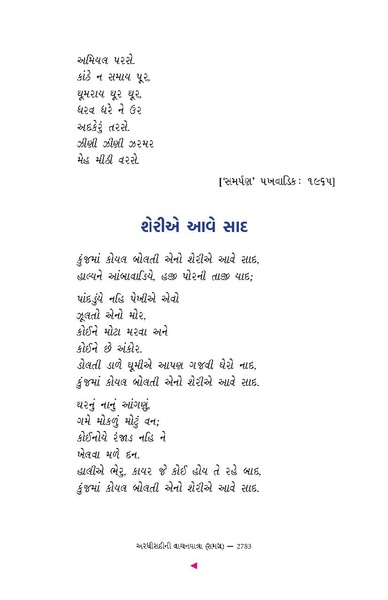 અમિયલ પરસે.
કાંઠે ન સમાય પૂર,
ઘૂમરાય ઘૂર ઘૂર,
ધરવ ધરે ને ઉર
અદકેરું તરસે.
ઝીણી ઝીણી ઝરમર
મેહ મીઠી વરસે.
['સમર્પણ' પખવાડિક: ૧૯૬૫]
શેરીએ આવે સાદ
કુંજમાં કોયલ બોલતી એનો શેરીએ આવે સાદ,
હાલ્યને આંબાવાડિયે, હજી પોરની તાજી યાદ;
પાંદડુંયે નહિ પેખીએ એવો
ઝૂલતો એનો મોર,
કોઈને મોટા મરવા અને
કોઈને છે અંકોર.
ડોલતી ડાળે ઘૂમીએ આપણ ગજવી ઘેરો નાદ,
કુંજમાં કોયલ બોલતી એનો શેરીએ આવે સાદ.
ઘરનું નાનું આંગણું,
ગમે મોકળું મોટું વન;
કોઈનીયે રંજાડ નહિ ને
ખેલવા મળે દન.
હાલીએ ભેરુ, કાયર જે કોઈ હોય તે રહે બાદ,
કુંજમાં કોયલ બોલતી એનો શેરીએ આવે સાદ.
અરધીસદીની વાચનયાત્રા (સમગ્ર) — 2783